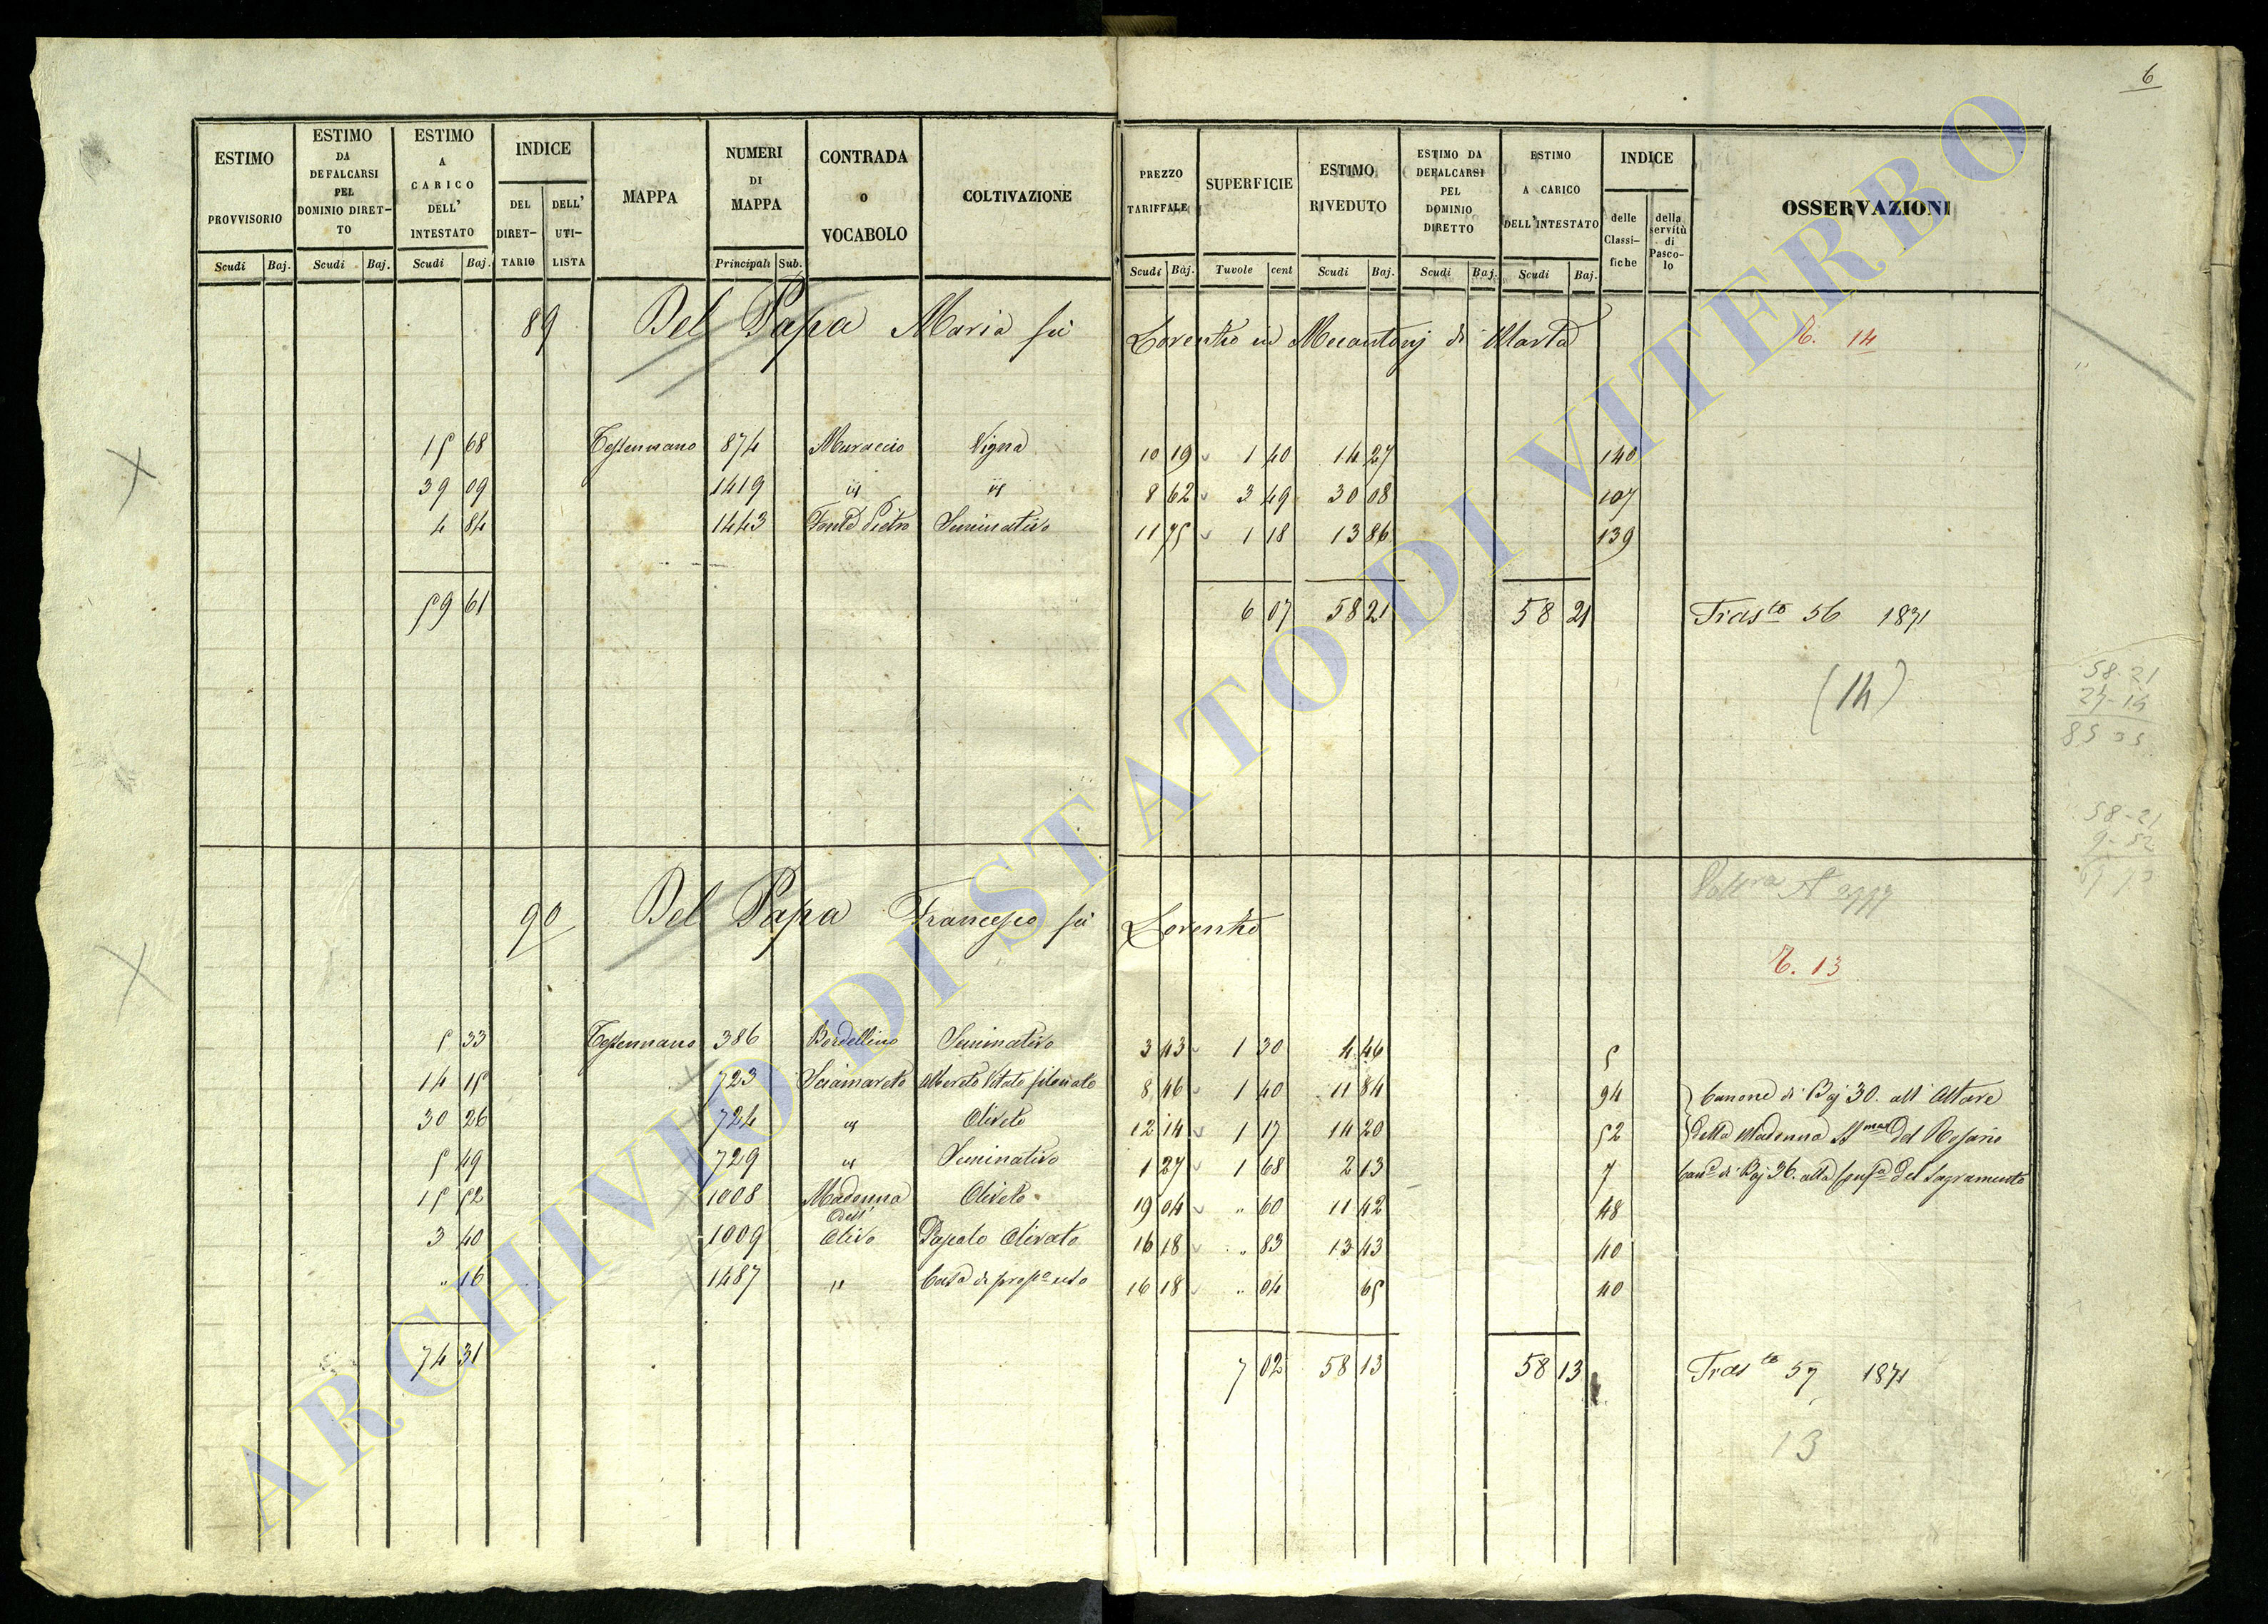 6
ESTIMO PROVVISORIO
ESTIMO DA DEFALCARSI PEL DOMINIO DIRET-TO
ESTIMO A CARICO DELL' INTESTATO
INDICE
DEL DIRET-TARIO
DELL' UTI-LISTA
MAPPA
NUMERI DI MAPPA
CONTRADA o VOCABOLO
COLTIVAZIONE
PREZZO TARIFFALE
SUPERFICIE
ESTIMO RIVEDUTO
ESTIMO DA DEFALCARSI PEL DOMINIO DIRETTO
ESTIMO A CARICO DELL'INTESTATO
INDICE
delle Classi-fiche
della servitù di Pasco-lo
OSSERVAZIONI
Scudi Baj. Scudi Baj. Scudi Baj. Principali Sub. Scudi Baj. Tavole cent Scudi Baj. Scudi Baj. Scudi Baj.
89 Del Papa Maria fù Lorenzo in di Marta 14
15 68 Tessennano 874 Muraccio Vigna 10 19 1 40 14 27 140
39 09 1419 id id 8 62 3 49 30 08 107
4 84 1443 Seminativo 11 75 1 18 13 86 139
59 61 6 07 58 21 58 21 Trasto 56 1871
(14)
58-21
27-14
85 35
58-21
9-52
90 Del Papa Francesco fù Lorenzo
13
5 33 Tessennano 386 Bordellino Seminativo 3 43 1 30 4 46 5
14 15 723 Sciamareto Alberato Vitato 8 46 1 40 11 84 94 Canone di Baj 30. all' Altare
30 26 724 id Olivato 12 14 1 17 14 20 52 della Madonna SSma del Rosario
5 49 729 id Seminativo 1 27 1 68 2 13 7 Cane di Baj 36. alla del Sagramento
15 52 1008 Madonna Olivato 19 04 " 60 11 42 48
dell'
3 40 1009 Olivo Pascolo Olivato 16 18 " 83 13 43 40
" 16 1487 " Casa di propo uso 16 18 " 04 65 40
74 31 7 02 58 13 58 13 Trasto 57 1871
13
ARCHIVIO DI STATO DI VITERBO